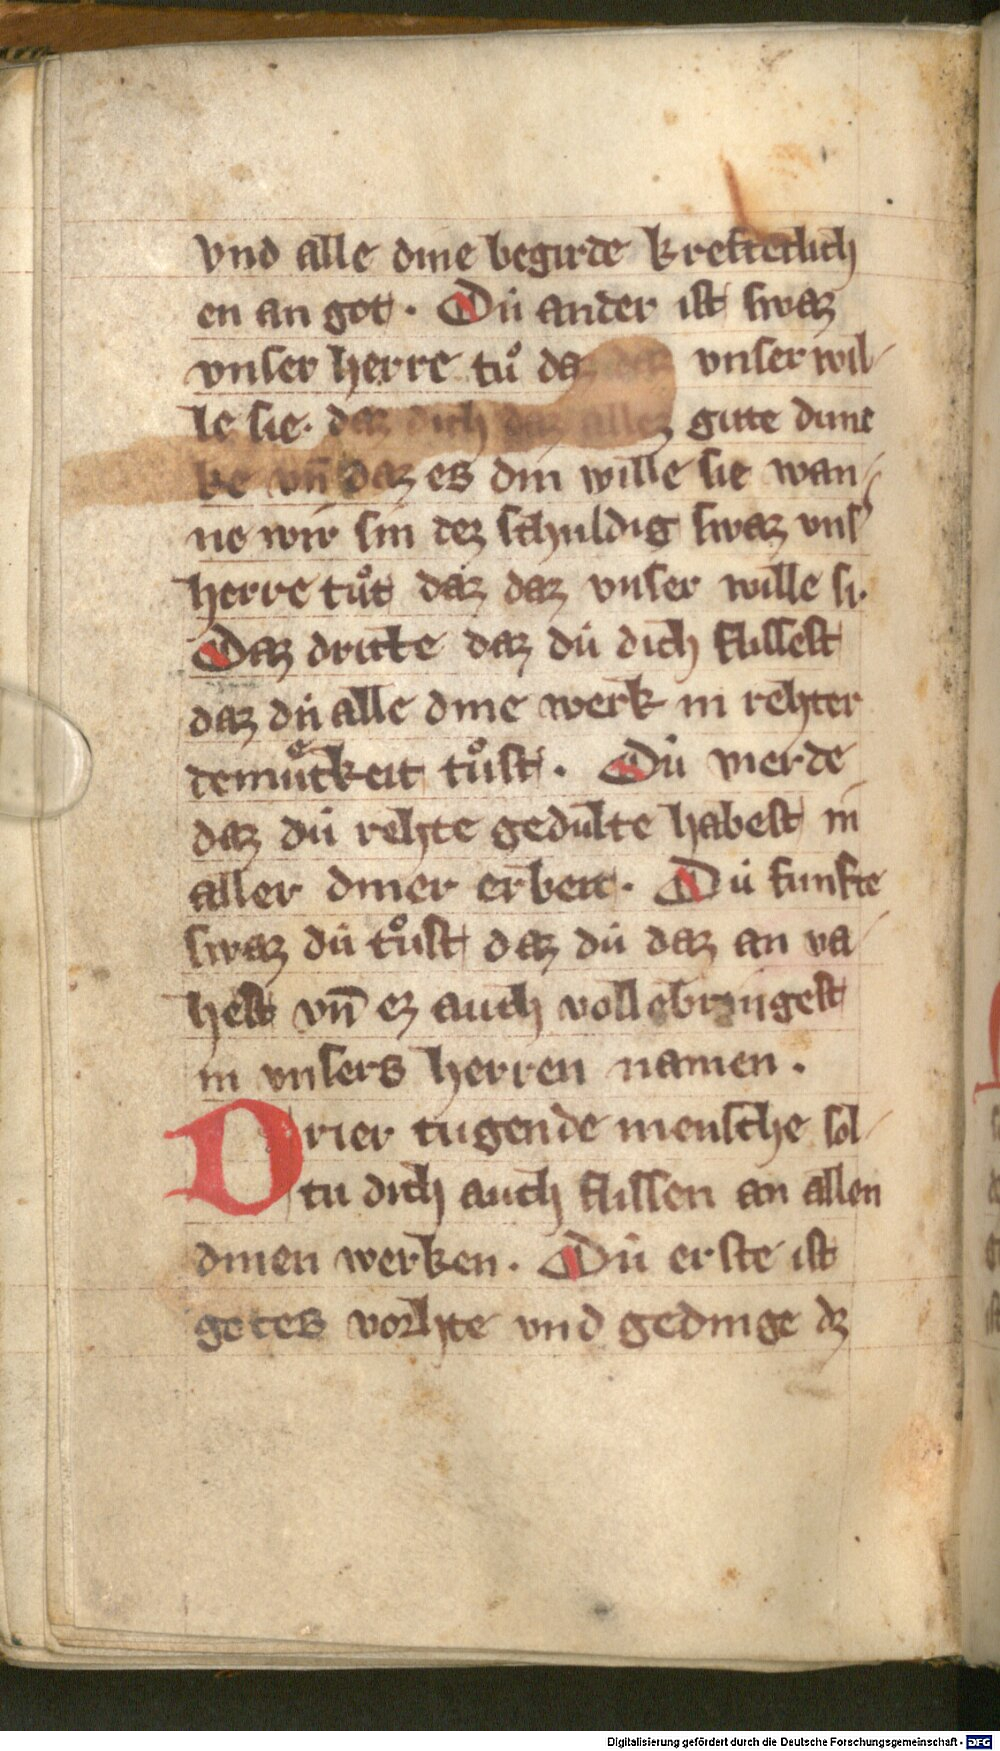 vnd alle dine begirde krefteclich
en an got · Dů ander ist swaz
vnser herre tůͦ daz daz vnser wil
le sie · daz dich daz allez gůte dun
ke vn̄ daz es din wille sie wan
ne wir sin dez schuldig swaz vns͛
herre tůͦt daz daz vnser wille si ·
Daz dritte daz dů dich flissest
daz dů alle dine werk in rehter
demuͤtkeit tůst · Dů vierde
daz dů rehte gedulte habest in
aller diner erbeit · Dů funfte
swaz dů tůst daz dů daz an va
hest vn̄ ez auch vollebringest
in vnsers herren namen ·
Drier tugende mensche sol
tu dich auch flissen an allen
dinen werken · Dů erste ist
gotes vorhte vnd gedinge dz
Digitalisierung gefördert durch die Deutsche Forschungsgemeinschaft - DFG